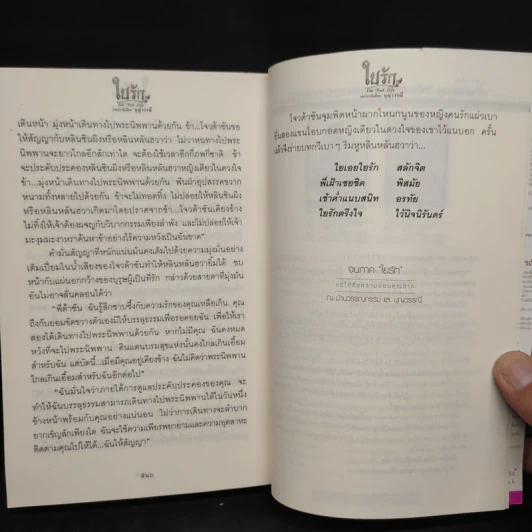 ใยรัก
The Pink Life
บุญวารณี
เดินหน้า มุ่งหน้าเดินทางไปพระนิพพานด้วยกัน ข้า...โจวต้าซันขอ
ให้สัญญากับหลินซินผิงหรือหลินหลันฮวาว่า ไม่ว่าหนทางไปพระ
นิพพานจะยาวไกลอีกสักเท่าใด จะต้องใช้เวลาอีกกี่ภพกี่ชาติ ข้า
จะประคับประคองหลินซินผิงหรือหลินหลันฮวาหญิงเดียวในดวงใจ
ข้า...มุ่งหน้าเดินทางไปพระนิพพานด้วยกัน ฟันฝ่าอุปสรรคขวาก
หนามทั้งหลายไปด้วยกัน ข้าจะไม่ทอดทิ้ง ไม่ปล่อยให้หลินซินผิง
หรือหลินหลันฮวาเกิดมาโดยปราศจากข้า...โจวต้าซันเคียงข้าง
ไม่ทิ้งให้เจ้าต้องผจญกับวิบากกรรมเพียงลำพัง และไม่ปล่อยให้เจ้า
มะงุมมะงาหราค้นหาข้าอย่างไร้ความหวังเป็นอันขาด"
คำมั่นสัญญาที่หนักแน่นมั่นคงเต็มไปด้วยความมุ่งมั่นอย่าง
เต็มเปี่ยมในน้ำเสียงของโจวต้าซันทำให้หลินหลันฮวายิ้มได้ ซบ
หน้ากับแผ่นอกกว้างของบุรุษผู้เป็นที่รัก กล่าวด้วยสายตาที่มุ่งมั่น
อันไม่อาจสั่นคลอนได้ว่า
"พี่ต้าซัน ฉันรู้สึกซาบซึ้งกับความรักของคุณเหลือเกิน คุณ
ถึงกับยอมขัดขวางตัวเองมิให้บรรลุธรรมเพื่อรอคอยฉัน เพื่อให้เรา
สองได้เดินทางไปพระนิพพานด้วยกัน หากไม่มีคุณ ฉันคงหมด
หวังที่จะไปพระนิพพาน ดินแดนบรมสุขแห่งนั้นคงไกลเกินเอื้อม
สำหรับฉัน แต่บัดนี้...เมื่อมีคุณอยู่เคียงข้าง ฉันไม่คิดว่าพระนิพพาน
ไกลเกินเอื้อมสำหรับฉันอีกต่อไป"
"ฉันมั่นใจว่าภายใต้การดูแลประคับประคองของคุณ จะ
ทำให้ฉันบรรลุธรรมสามารถเดินทางไปพระนิพพานได้ในวันหนึ่ง
ข้างหน้าพร้อมกับคุณอย่างแน่นอน ไม่ว่าการเดินทางจะลำบาก
ยากเข็ญสักเพียงใด ฉันจะใช้ความเพียรพยายามและความอุตสาหะ
ติดตามคุณไปให้ได้...ฉันให้สัญญา"
ใยรัก
The Pink Life
บุญวารณี
โจวต้าซันจุมพิตหน้าผากไหนกนูนของหญิงคนรักแผ่วเบา
ยื่นสองแขนโอบกอดหญิงเดียวในดวงใจของเขาไว้แนบอก ครั้น
แล้วจึงร่ายบทกวีเบา ๆ ริมหูหลินหลันฮวาว่า...
ใยเอยใยรัก สลักจิต
พี่เฝ้าเชยชิด พิสมัย
เช้าค่ำแนบสนิท อรทัย
ใยรักตรึงใจ ไว้นิจนิรันดร์
จบภาค 'ใยรัก'
ณ บ้านวรรณกรรม และ บุญวารณี